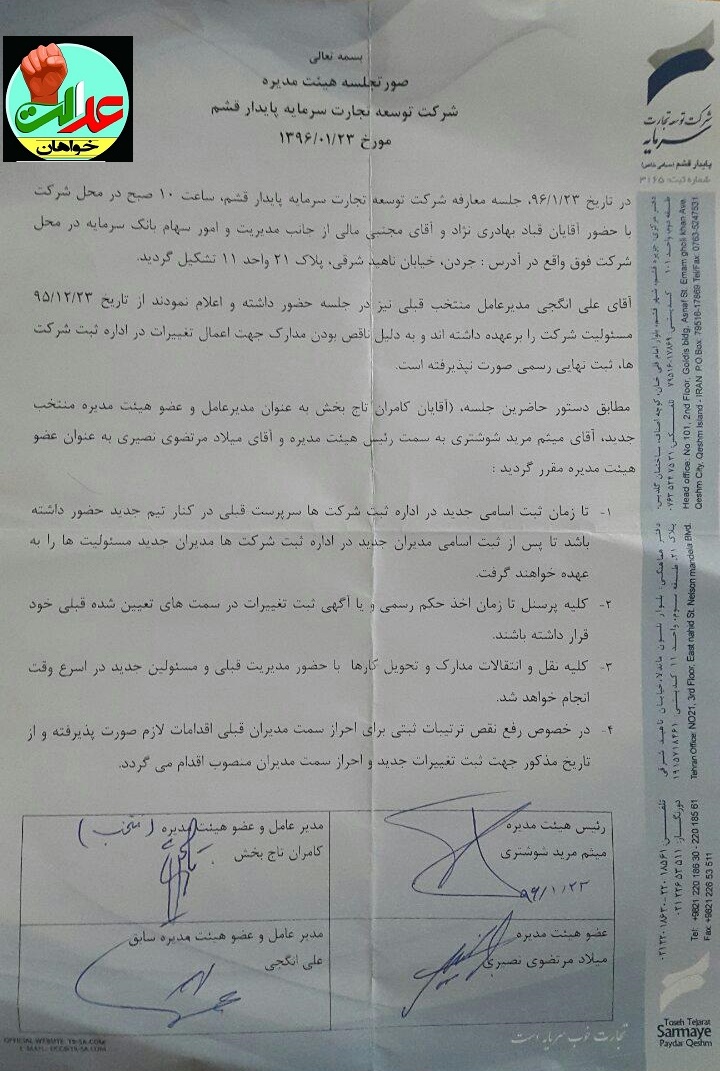 عدالت
خواهان
بسمه تعالی
صورتجلسه هیئت مدیره
شرکت توسعه تجارت سرمایه پایدار قشم
مورخ ۱۳۹۶/۰۱/۲۳
شرکت توسعه تجارت
سرمایه
پایدار قشم (سهامی خاص)
شماره ثبت: ۳۱۶۵
در تاریخ ۹۶/۱/۲۳، جلسه معارفه شرکت توسعه تجارت سرمایه پایدار قشم، ساعت ۱۰ صبح در محل شرکت
با حضور آقایان قباد بهادری نژاد و آقای مجتبی مالی از جانب مدیریت و امور سهام بانک سرمایه در محل
شرکت فوق واقع در آدرس : جردن، خیابان ناهید شرقی، پلاک ۲۱ واحد ۱۱ تشکیل گردید.
آقای علی انگجی مدیرعامل منتخب قبلی نیز در جلسه حضور داشته و اعلام نمودند از تاریخ ۹۵/۱۲/۲۳
مسئولیت شرکت را برعهده داشته اند و به دلیل ناقص بودن مدارک جهت اعمال تغییرات در اداره ثبت شرکت
ها، ثبت نهایی رسمی صورت نپذیرفته است.
مطابق دستور حاضرین جلسه، (آقایان کامران تاج بخش به عنوان مدیرعامل و عضو هیئت مدیره منتخب
جدید، آقای میثم مرید شوشتری به سمت رئیس هیئت مدیره و آقای میلاد مرتضوی نصیری به عنوان عضو
هیئت مدیره مقرر گردید :
۱- تا زمان ثبت اسامی جدید در اداره ثبت شرکت ها سرپرست قبلی در کنار تیم جدید حضور داشته
باشد تا پس از ثبت اسامی مدیران جدید در اداره ثبت شرکت ها مدیران جدید مسئولیت ها را به
عهده خواهند گرفت.
۲- کلیه پرسنل تا زمان اخذ حکم رسمی و یا آگهی ثبت تغییرات در سمت های تعیین شده قبلی خود
قرار داشته باشند.
۳- کلیه نقل و انتقالات مدارک و تحویل کارها با حضور مدیریت قبلی و مسئولین جدید در اسرع وقت
انجام خواهد شد.
۴- در خصوص رفع نقص ترتیبات ثبتی برای احراز سمت مدیران قبلی اقدامات لازم صورت پذیرفته و از
تاریخ مذکور جهت ثبت تغییرات جدید و احراز سمت مدیران منصوب اقدام می گردد.
رئیس هیئت مدیره
میثم مرید شوشتری
۹۶/۱/۲۳
مدیر عامل و عضو هیئت مدیره (منتخب)
کامران تاج بخش
عضو هیئت مدیره
میلاد مرتضوی نصیری
مدیر عامل و عضو هیئت مدیره سابق
علی انگجی
تجارت خوب سرمایه است
Head office: No 101, 2nd Floor, Goldis bldg, Asnaf St. Emam gholi khan Ave.
Qeshm City, Qeshm Island - IRAN P.O.Box: 79516-17869 Tel/Fax: 0763-5247531
Tehran Office: NO21, 3rd Floor, East nahid St. Nelson mandela Blvd.
Tel: +9821 220 186 30 - 220 185 61
Fax: +9821 226 53 511
Toseh Tejarat
Sarmaye
Paydar Qeshm